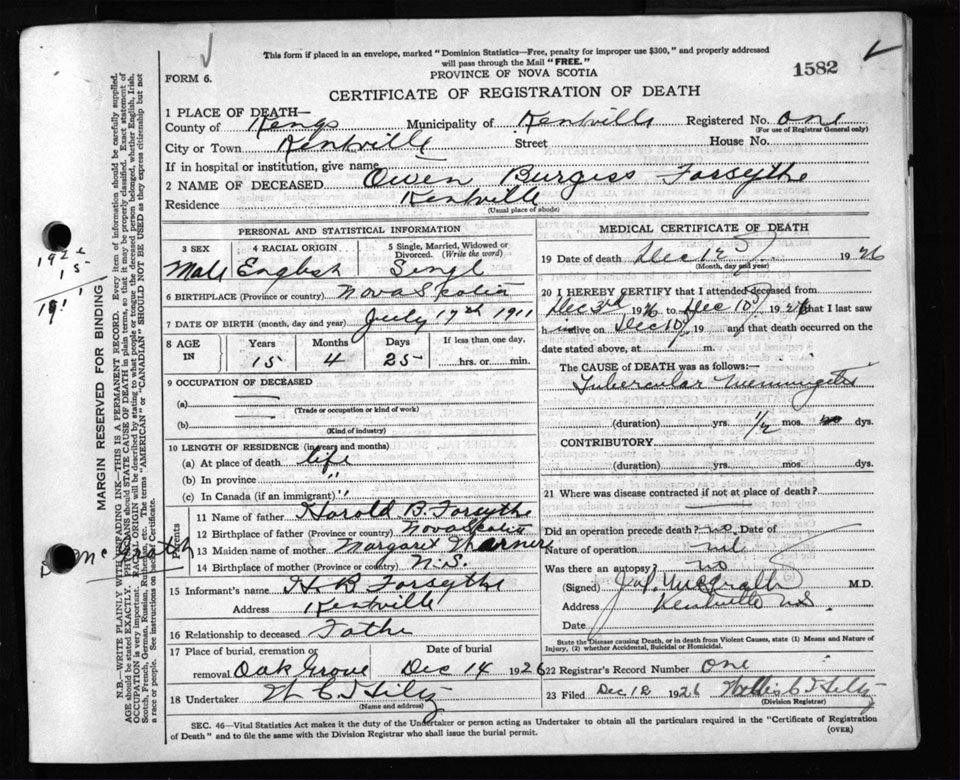 This form if placed in an envelope, marked "Dominion Statistics—Free, penalty for improper use $300," and properly addressed
will pass through the Mail "FREE."
PROVINCE OF NOVA SCOTIA
1582
FORM 6.
CERTIFICATE OF REGISTRATION OF DEATH
1 PLACE OF DEATH—
County of Kings Municipality of Kentville Registered No. One
(For use of Registrar General only)
City or Town Kentville Street House No.
If in hospital or institution, give name
2 NAME OF DECEASED Owen Burgess Forsythe
Residence Kentville
(Usual place of abode)
PERSONAL AND STATISTICAL INFORMATION
3 SEX 4 RACIAL ORIGIN 5 Single, Married, Widowed or
Divorced. (Write the word)
Male English Singl
6 BIRTHPLACE (Province or country) Nova Scotia
7 DATE OF BIRTH (month, day and year) July 17th 1911
8 AGE IN Years Months Days If less than one day,
15 4 25 hrs. or min.
9 OCCUPATION OF DECEASED
(a)
(Trade or occupation or kind of work)
(b)
(Kind of industry)
10 LENGTH OF RESIDENCE (in years and months)
(a) At place of death life
(b) In province "
(c) In Canada (if an immigrant) "
Parents
11 Name of father Harold B. Forsythe
12 Birthplace of father (Province or country) Nova Scotia
13 Maiden name of mother Margaret
14 Birthplace of mother (Province or country) N.S.
15 Informant's name H B Forsythe
Address Kentville
16 Relationship to deceased Fathe
17 Place of burial, cremation or Date of burial
removal Oak Grove Dec 14 1926
18 Undertaker W C T Hiltz
(Name and address)
MEDICAL CERTIFICATE OF DEATH
19 Date of death Dec 12 1926
(Month, day and year)
20 I HEREBY CERTIFY that I attended deceased from
Dec 3rd 1926 to Dec 10 1926 that I last saw
h alive on Dec 10 19 and that death occurred on the
date stated above, at m.
The CAUSE OF DEATH was as follows:—
Tubercular Meningitis
(duration) yrs. 1/2 mos. dys.
CONTRIBUTORY.
(duration) yrs. mos. dys.
21 Where was disease contracted if not at place of death?
Did an operation precede death? no Date of
Nature of operation nil
Was there an autopsy? no
(Signed) McGrath M.D.
Address Kentville NS
Date
State the Disease causing Death, or in death from Violent Causes, state (1) Means and Nature of
Injury, (2) whether Accidental, Suicidal or Homicidal.
22 Registrar's Record Number One
23 Filed Dec 12 1926 Willis C T Hiltz
(Division Registrar)
SEC. 46—Vital Statistics Act makes it the duty of the Undertaker or person acting as Undertaker to obtain all the particulars required in the "Certificate of Registration
of Death" and to file the same with the Division Registrar who shall issue the burial permit. (OVER)
MARGIN RESERVED FOR BINDING
N.B.—WRITE PLAINLY WITH UNFADING INK—THIS IS A PERMANENT RECORD. Every item of information should be carefully supplied.
AGE should be stated EXACTLY. PHYSICIANS should STATE CAUSE OF DEATH in plain terms, so that it may be properly classified. Exact statement of
OCCUPATION is very important. RACIAL ORIGIN will be described by stating to what people or tongue the deceased person belonged, whether English, Irish,
Scotch, French, German, Russian, Ruthenian, etc. The terms "AMERICAN" or "CANADIAN" SHOULD NOT BE USED as they express citizenship but not
a race or people. See instructions on back of Certificate.
McGrath